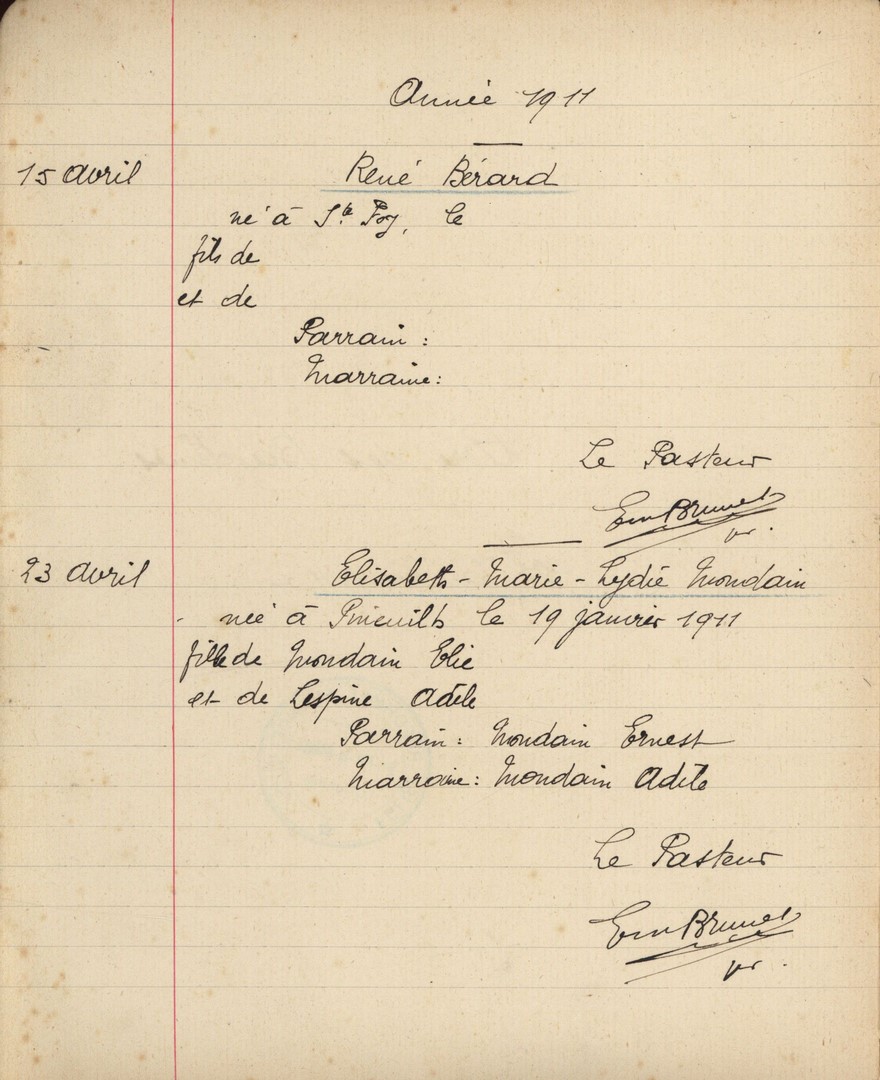 Année 1911
15 avril René Bérard
né à Ste Foy, le
fils de
et de
Parrain :
Marraine :
Le Pasteur
Em Brunet
pr.
23 avril Elisabeth-Marie-Lydie Mondain
née à Pineuilh le 19 janvier 1911
fille de Mondain Elie
et de Lespine Adèle
Parrain : Mondain Ernest
Marraine : Mondain Adèle
Le Pasteur
Em Brunet
pr.